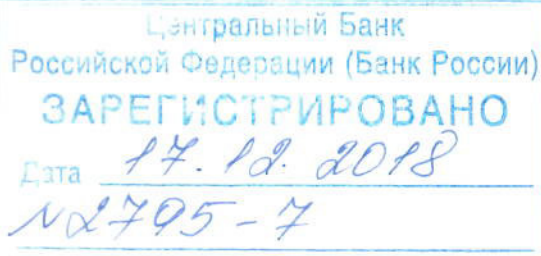 Центральный Банк
Российской Федерации (Банк России)
ЗАРЕГИСТРИРОВАНО
Дата 17.12.2018
№2795-7